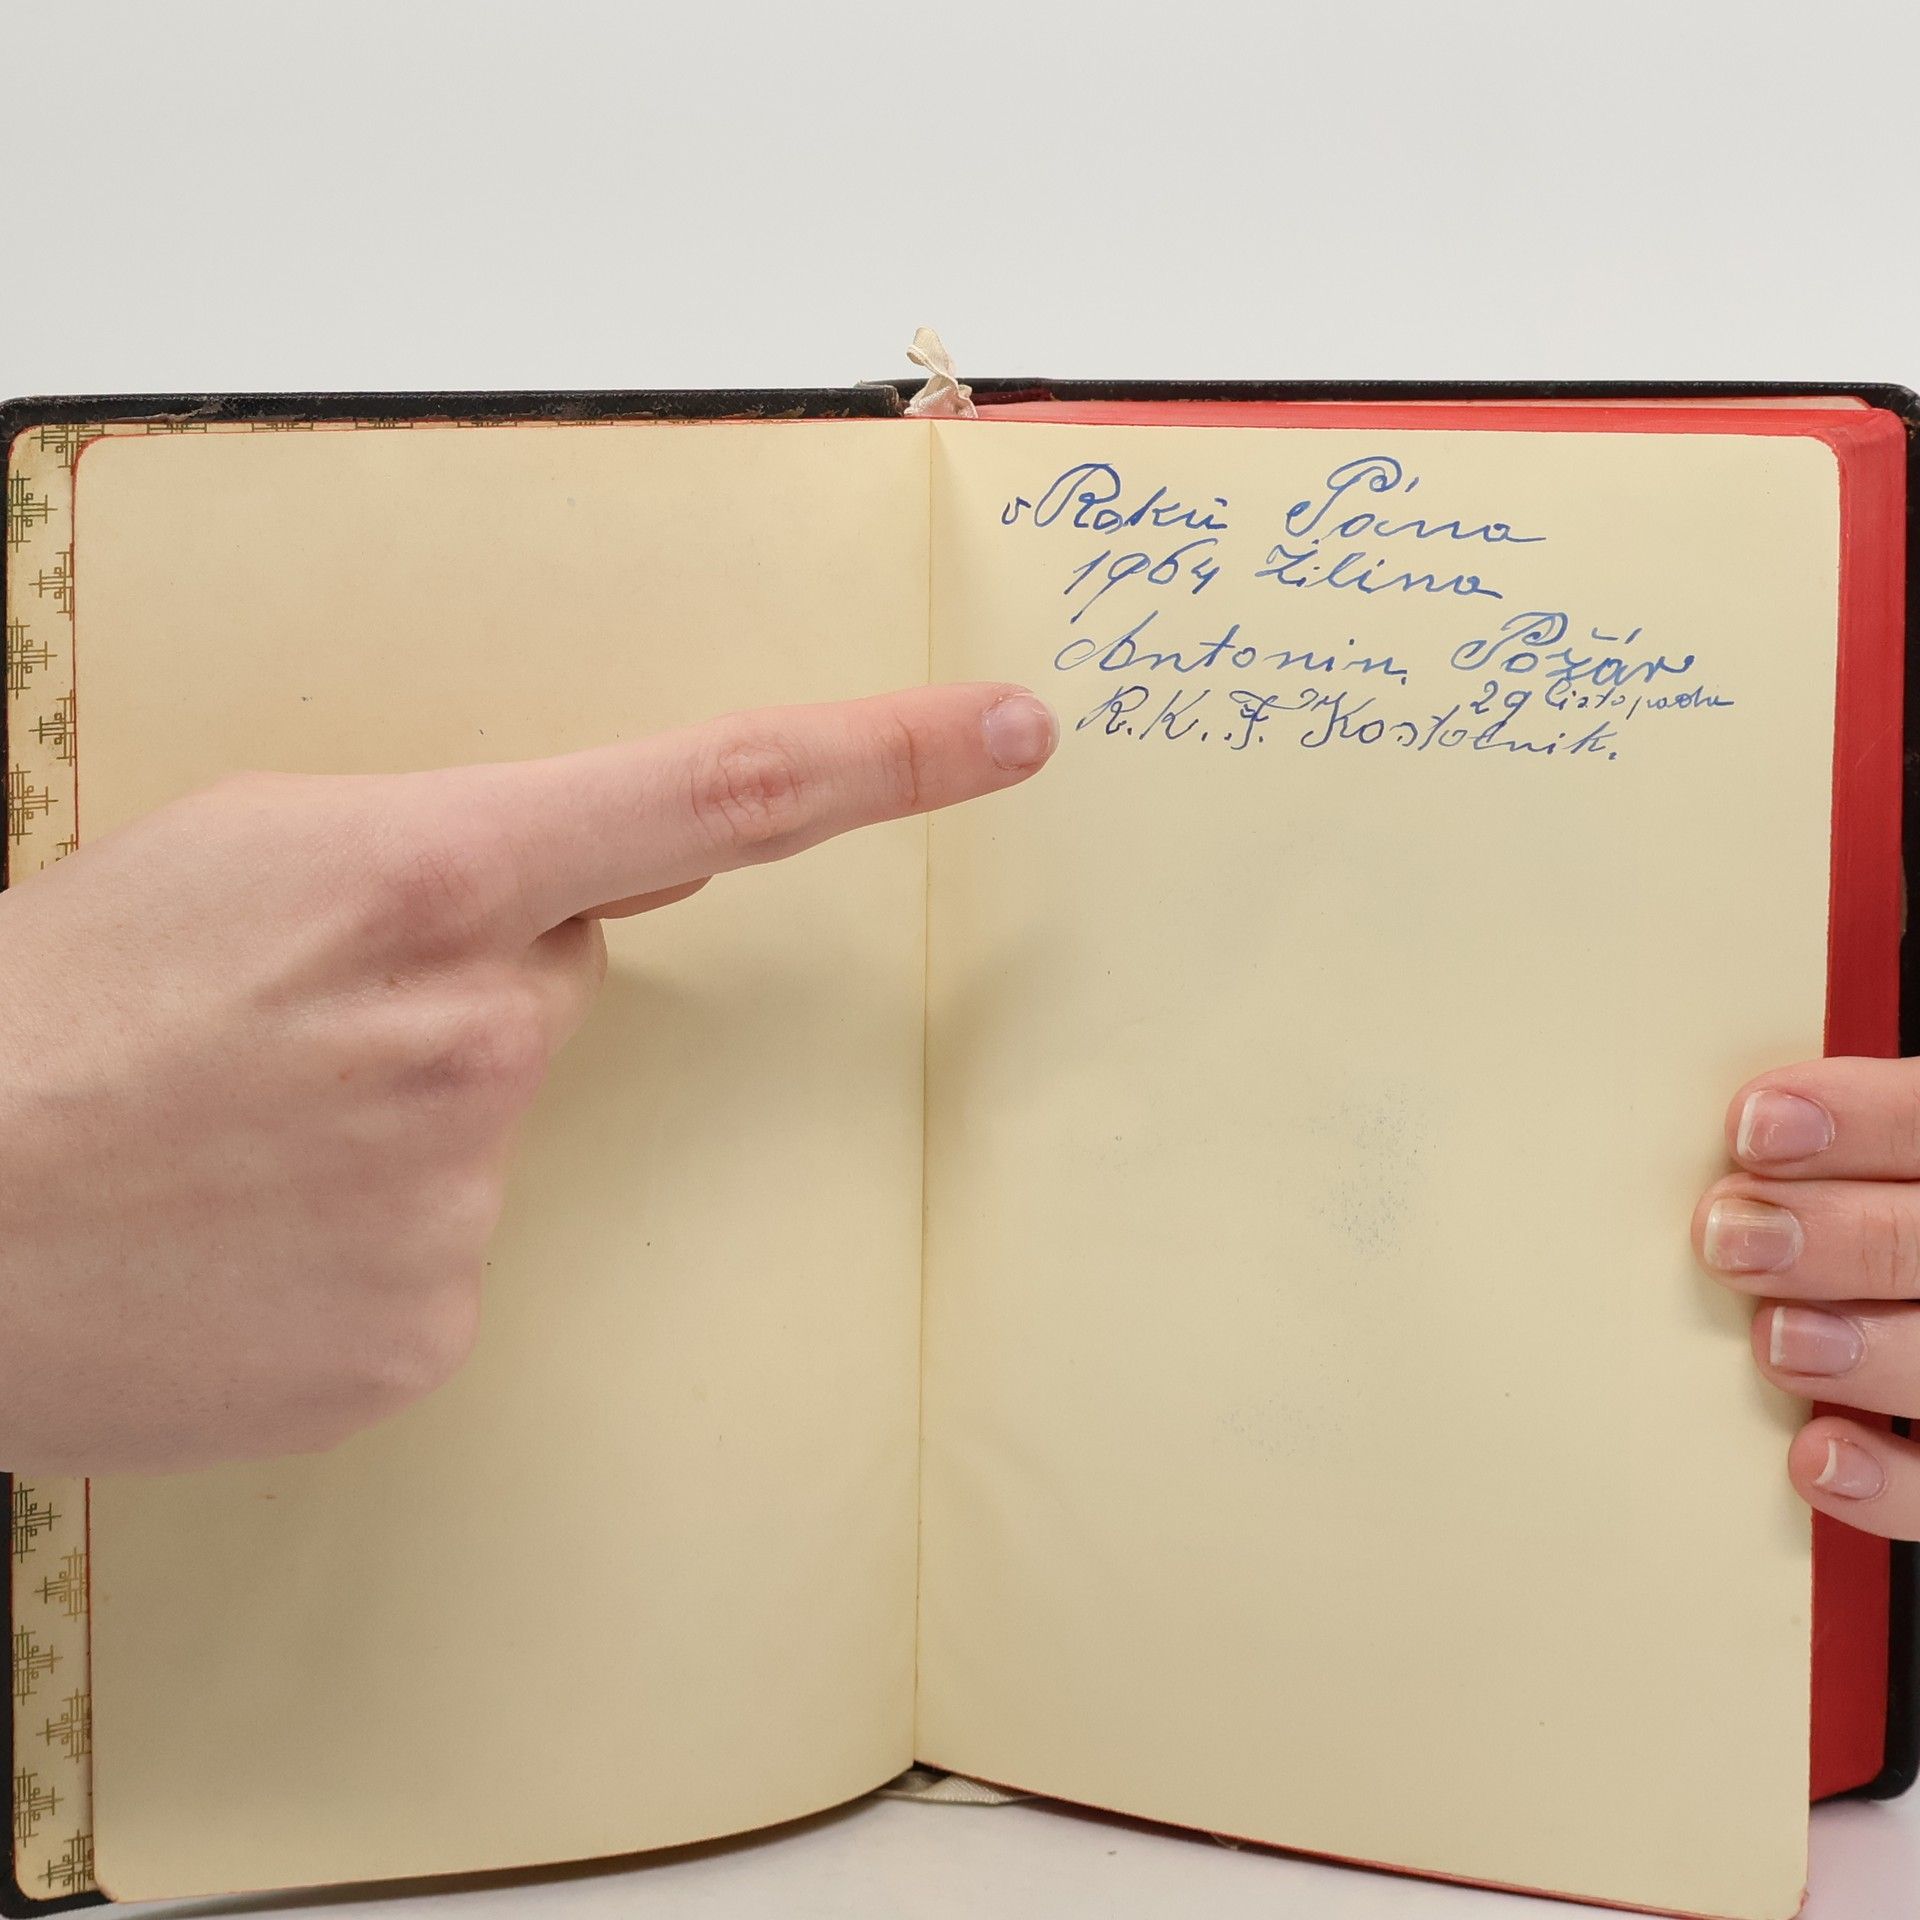 v Roků Pána
1964 Žilina
Antonin Požár
29 listopadu
R.K.F. Kostolnik.